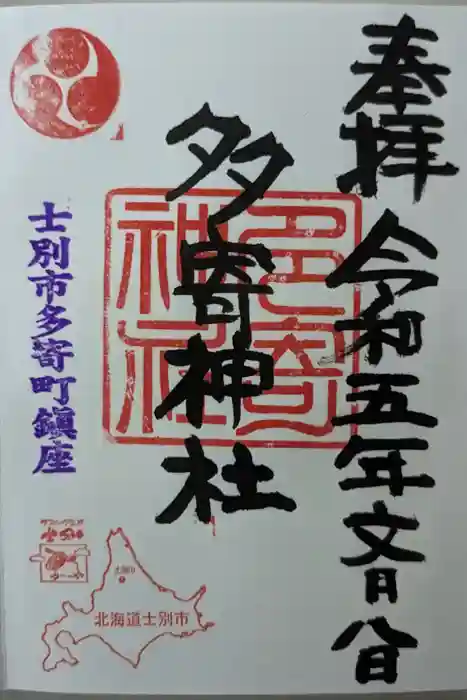 奉拝 令和五年文月八日
多寄神社
多寄神社
士別市多寄町鎮座
北海道士別市